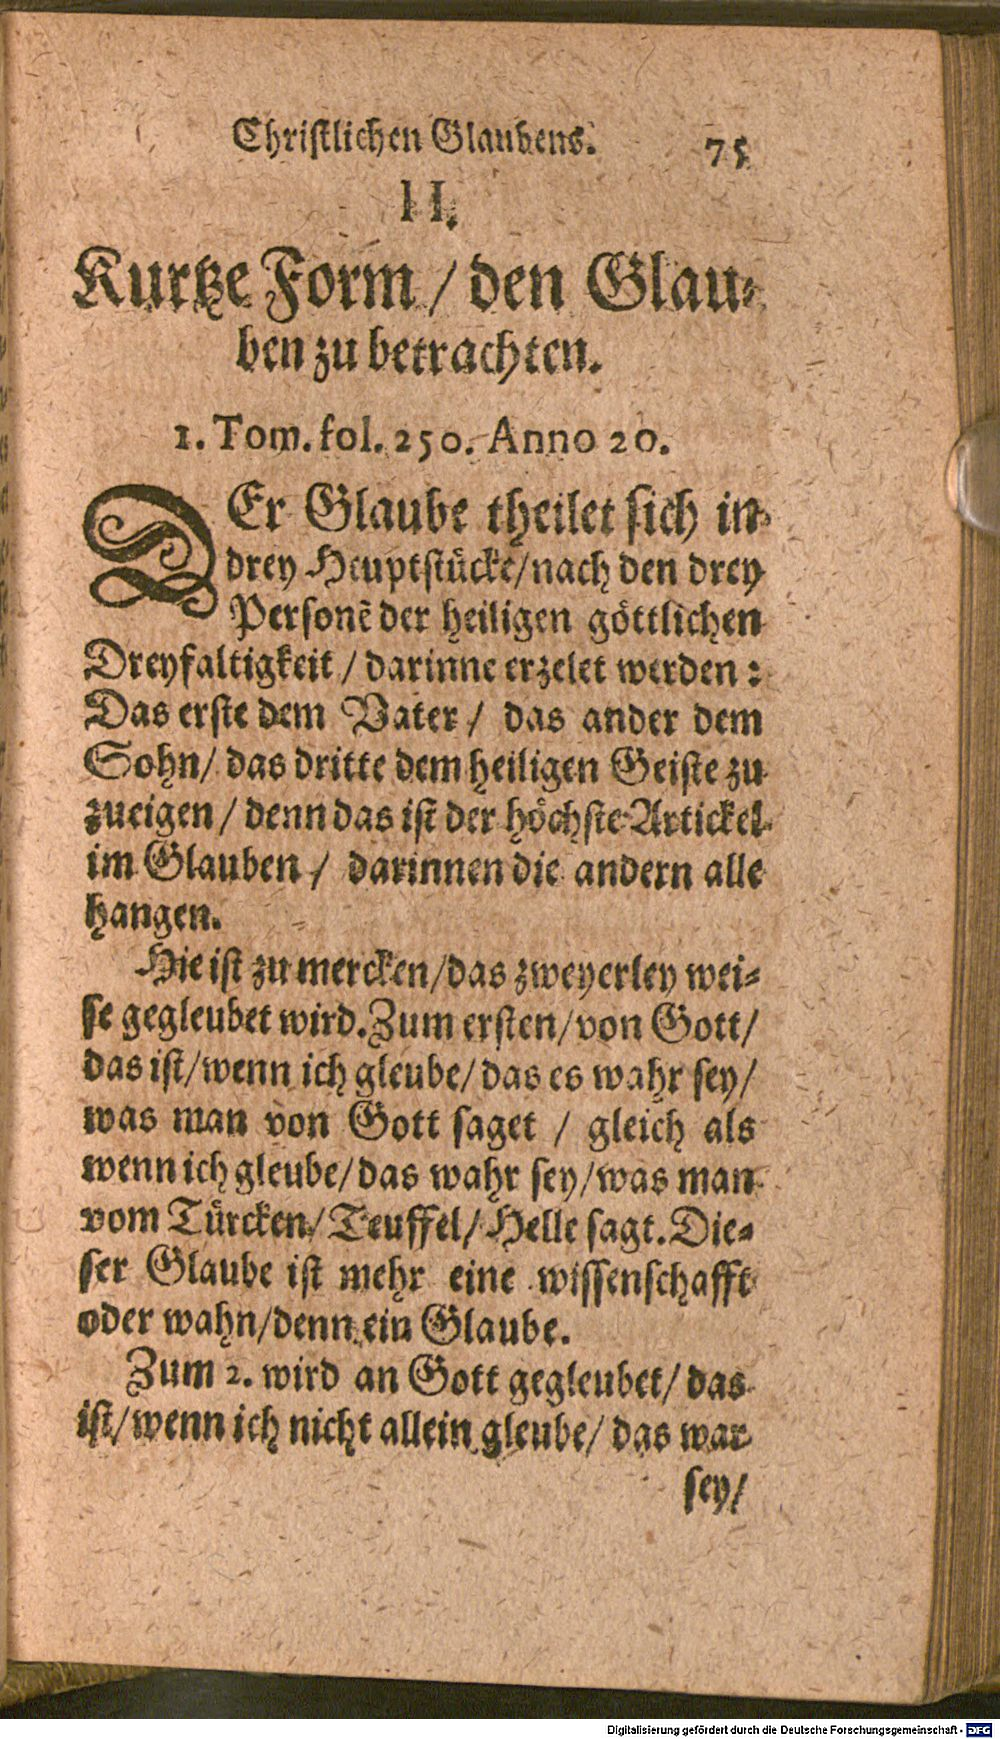 Christlichen Glaubens. 75
II.
Kurtze Form / den Glau-
ben zu betrachten.
1. Tom. fol. 250. Anno 20.
DEr Glaube theilet sich in
drey Heuptstücke/nach den drey
Personẽ der heiligen göttlichen
Dreyfaltigkeit / darinne erzelet werden:
Das erste dem Vater / das ander dem
Sohn/ das dritte dem heiligen Geiste zu
zueigen / denn das ist der höchste Artickel
im Glauben / darinnen die andern alle
hangen.
Hie ist zu mercken/das zweyerley wei-
se gegleubet wird. Zum ersten/von Gott/
das ist/wenn ich gleube/das es wahr sey/
was man von Gott saget / gleich als
wenn ich gleube/das wahr sey/was man
vom Türcken/Teuffel/Helle sagt. Die-
ser Glaube ist mehr eine wissenschafft
oder wahn/denn ein Glaube.
Zum 2. wird an Gott gegleubet/ das
ist/wenn ich nicht allein gleube/ das war
sey/
Digitalisierung gefördert durch die Deutsche Forschungsgemeinschaft - DFG